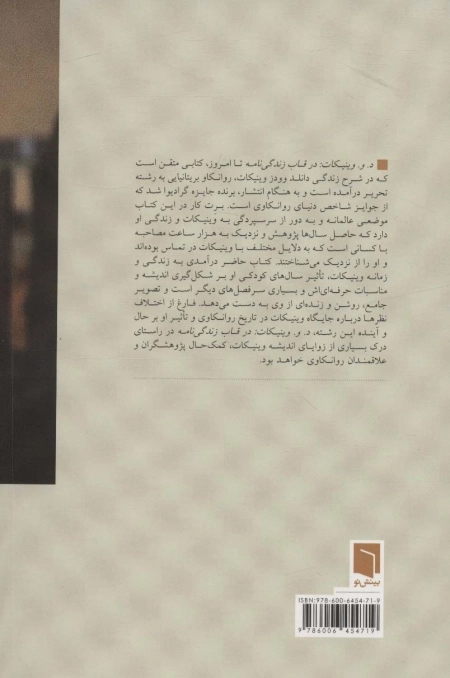 د. و. وینیکات: در قاب زندگی‌نامه تا امروز، کتابی متقن است
که در شرح زندگی دانلد وودز وینیکات، روانکاو بریتانیایی به رشته
تحریر درآمده است و به هنگام انتشار، برنده جایزه گرادیوا شد که
از جوایز شاخص دنیای روانکاوی است. برت کار در این کتاب
موضعی عالمانه و به دور از سرسپردگی به وینیکات و زندگی او
دارد که حاصل سال‌ها پژوهش و نزدیک به هزار ساعت مصاحبه
با کسانی است که به دلایل مختلف با وینیکات در تماس بوده‌اند
و او را از نزدیک می‌شناختند. کتاب حاضر درآمدی به زندگی و
زمانه وینیکات، تأثیر سال‌های کودکی او بر شکل‌گیری اندیشه و
مناسبات حرفه‌ای‌اش و بسیاری سرفصل‌های دیگر است و تصویر
جامع، روشن و زنده‌ای از وی به دست می‌دهد. فارغ از اختلاف
نظرها درباره جایگاه وینیکات در تاریخ روانکاوی و تأثیر او بر حال
و آینده این رشته، د. و. وینیکات: در قاب زندگی‌نامه در راستای
درک بسیاری از زوایای اندیشه وینیکات، کمک‌حال پژوهشگران و
علاقمندان روانکاوی خواهد بود.
بینش‌نو
ISBN:978-600-6454-71-9
9 786006 454719